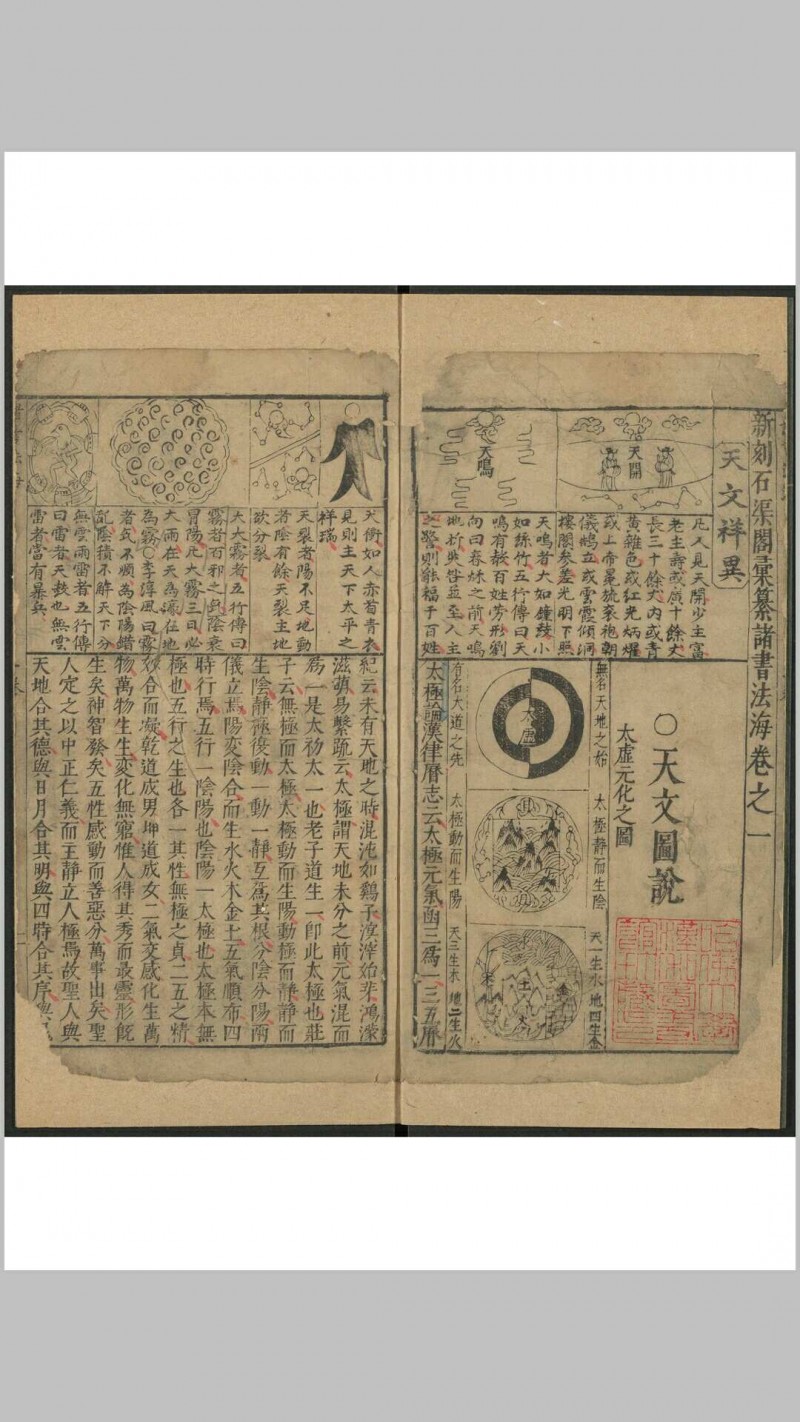 新刻石渠閣彙纂諸書法海卷之一
天文祥異
天開
天鳴
凡人見天開少主富
老主壽或廣十餘丈
長三十餘丈內或青
黃雜色或紅光炳燿
或上帝冕旒袞袍朝
儀鵠立或雲霞傾洞
樓閣參差光明下照
天鳴者大如鐘鼓小
如絲竹五行傳曰天
鳴有聲百姓勞形劉
向曰春秋之前天鳴
地坼吳咎並至人主
之警則移福于百姓
〇天文圖說
太虛元化之圖
無名天地之始
太極靜而生陰
天一生水
地四生金
太虛
土
木
火
有名大道之先
太極動而生陽
天三生木
地二生火
太極論漢律曆志云太極元氣函三為一三五曆
天衝如人赤首青衣
見則主天下太平之
祥瑞
天裂者陽不足地動
者陰有餘天裂主地
欲分裂
天大霧者五行傳曰
霧者百邪之氣陰衰
冒陽凡大霧三日必
大雨在天為濛在地
為霧〇李淳風曰霧
者氣不順為陰陽錯
亂陰積不解天下分
無雲雨雷者五行傳
曰雷者天鼓也無雲
雷者當有暴兵
紀云未有天地之時混沌如鷄子溟涬始芽鴻濛
滋萌易繫疏云太極謂天地未分之前元氣混而
為一是太初太一也老子道生一即此太極也莊
子云無極而太極太極動而生陽動極而靜靜而
生陰靜極復動一動一靜互為其根分陰分陽兩
儀立焉陽変陰合而生水火木金土五氣順布四
時行焉五行一陰陽也陰陽一太極也太極本無
極也五行之生也各一其性無極之貞二五之精
妙合而凝乾道成男坤道成女二氣交感化生萬
物萬物生生変化無窮惟人得其秀而最靈形既
生矣神智發矣五性感動而善惡分萬事出矣聖
人定之以中正仁義而主靜立人極焉故聖人與
天地合其德與日月合其明與四時合其序與鬼